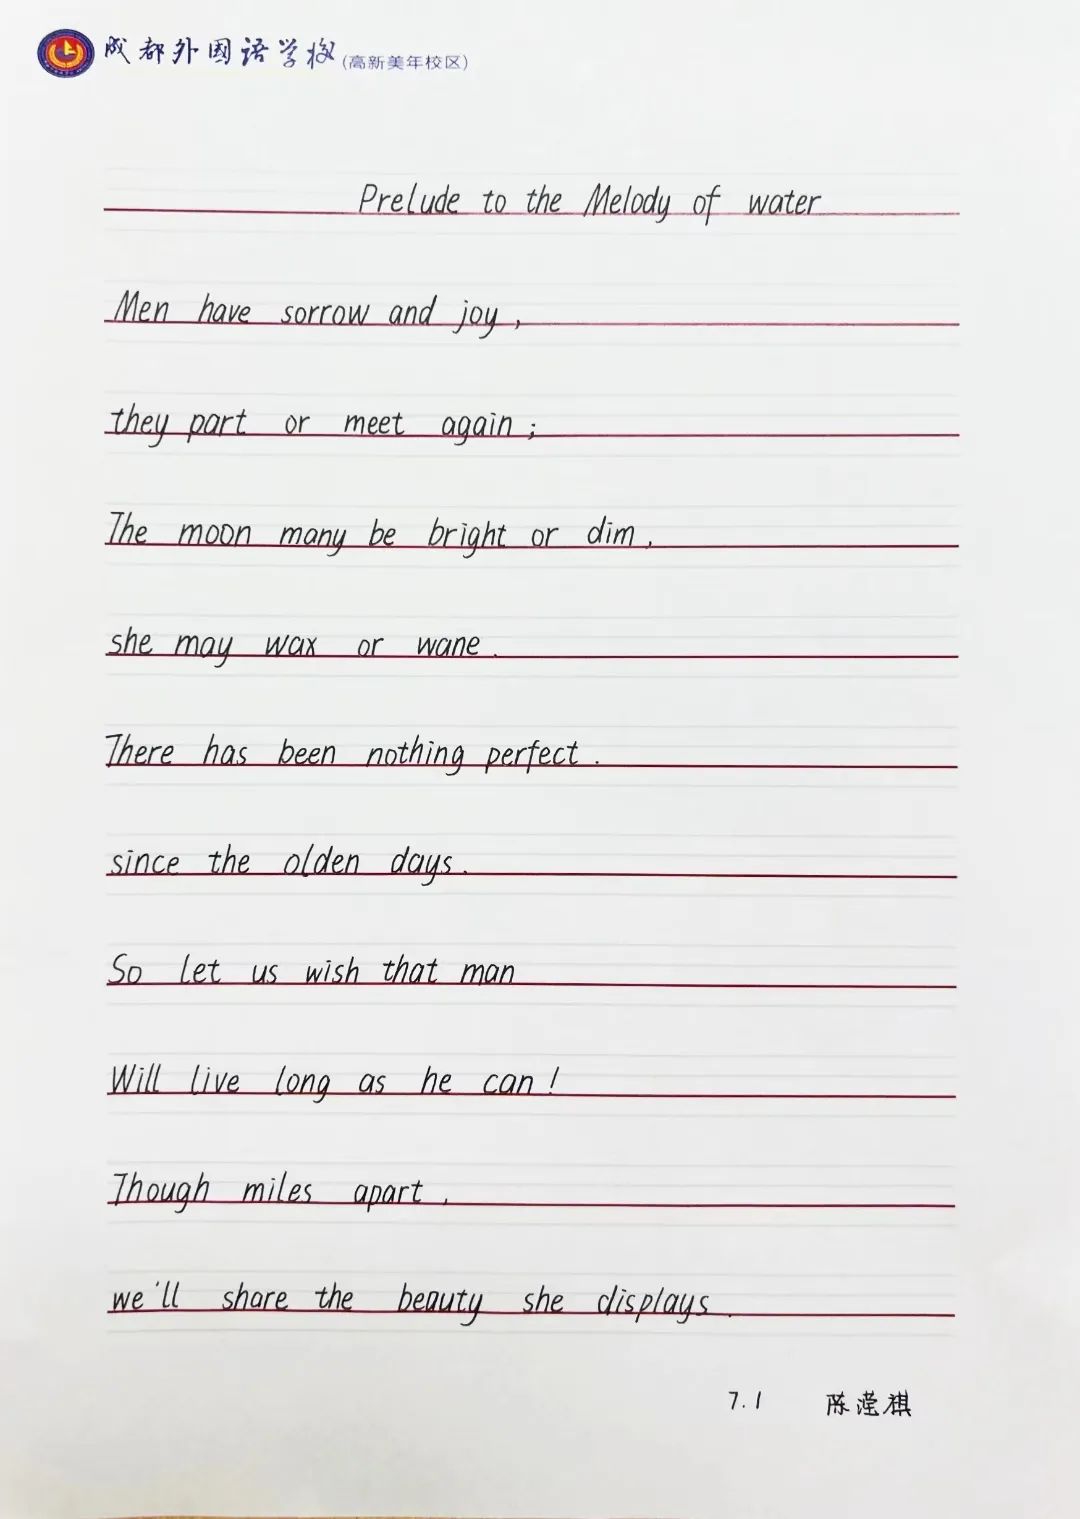 成都外国语学校(高新美年校区)
Prelude to the Melody of water
Men have sorrow and joy,
they part or meet again;
The moon many be bright or dim,
she may wax or wane.
There has been nothing perfect.
since the olden days.
So let us wish that man
Will live long as he can!
Though miles apart,
we'll share the beauty she displays.
7.1 陈滢祺